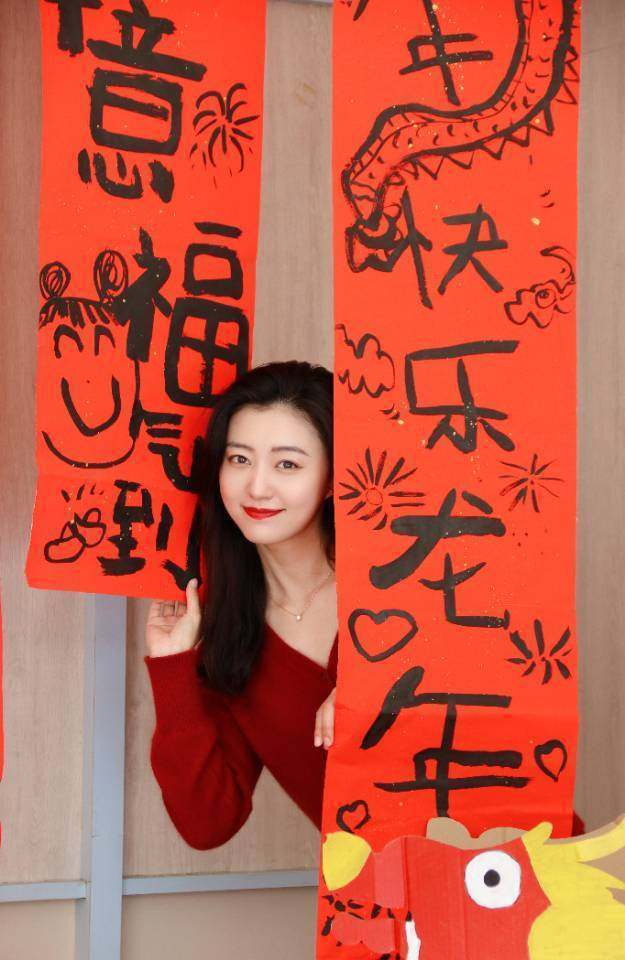 年快乐龙年
意福气到